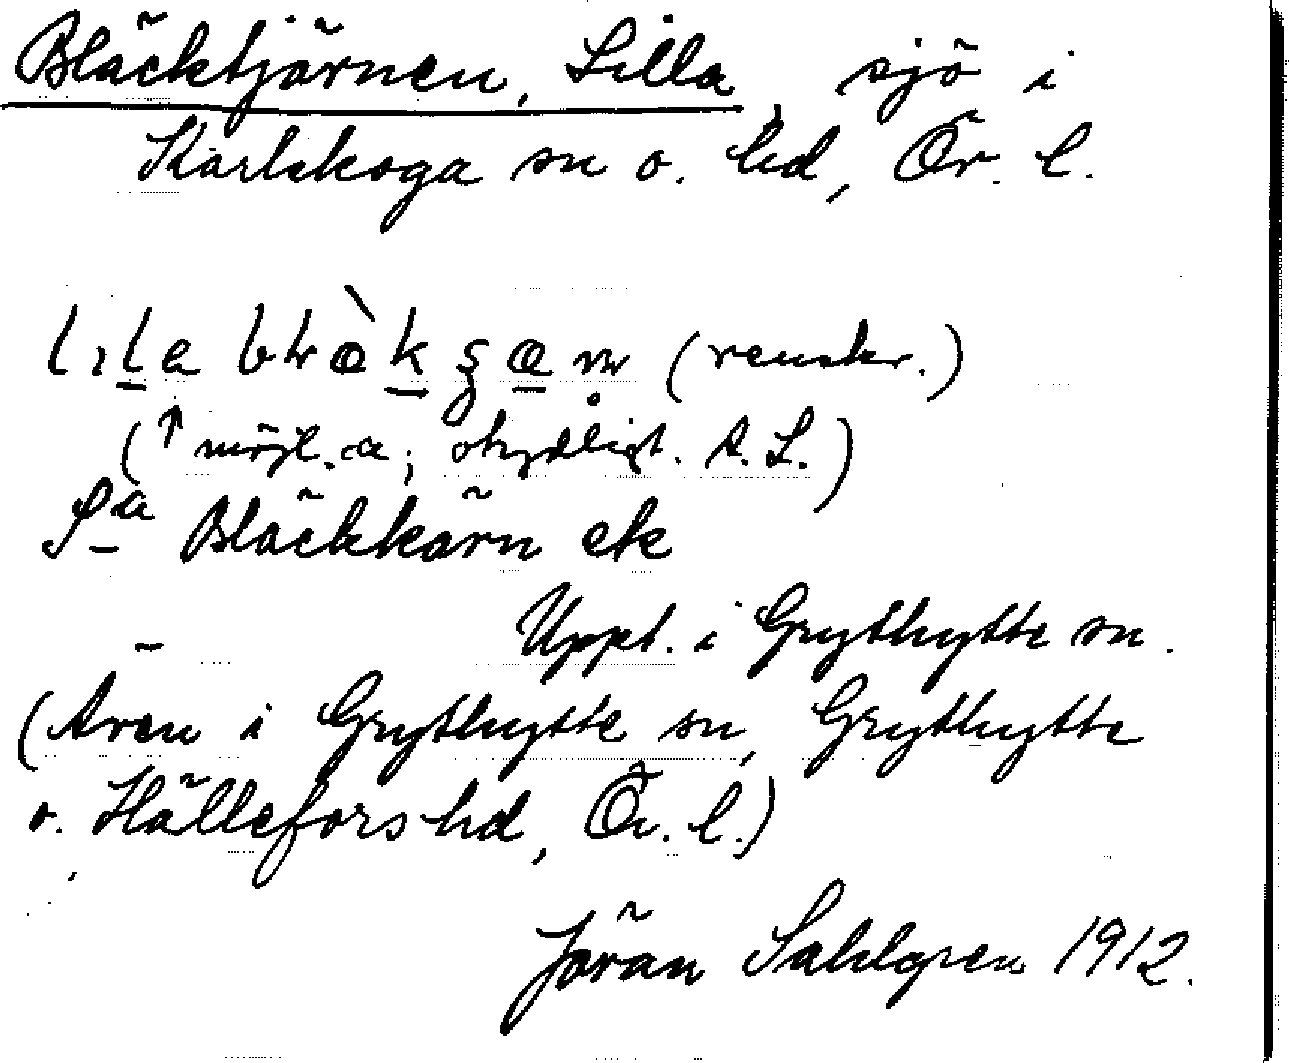 Bläcktjärnen, Lilla, sjö i
Karlskoga sn o. hd, Ör. l.
(renskr.)
(↑ möjl. a; otydligt. A. L.)
Sa Bläckkärn ek
Uppt. i Grythytte sn.
(Även i Grythytte sn, Grythytte
o. Hällefors hd, Ör. l.)
Jöran Sahlgren 1912.